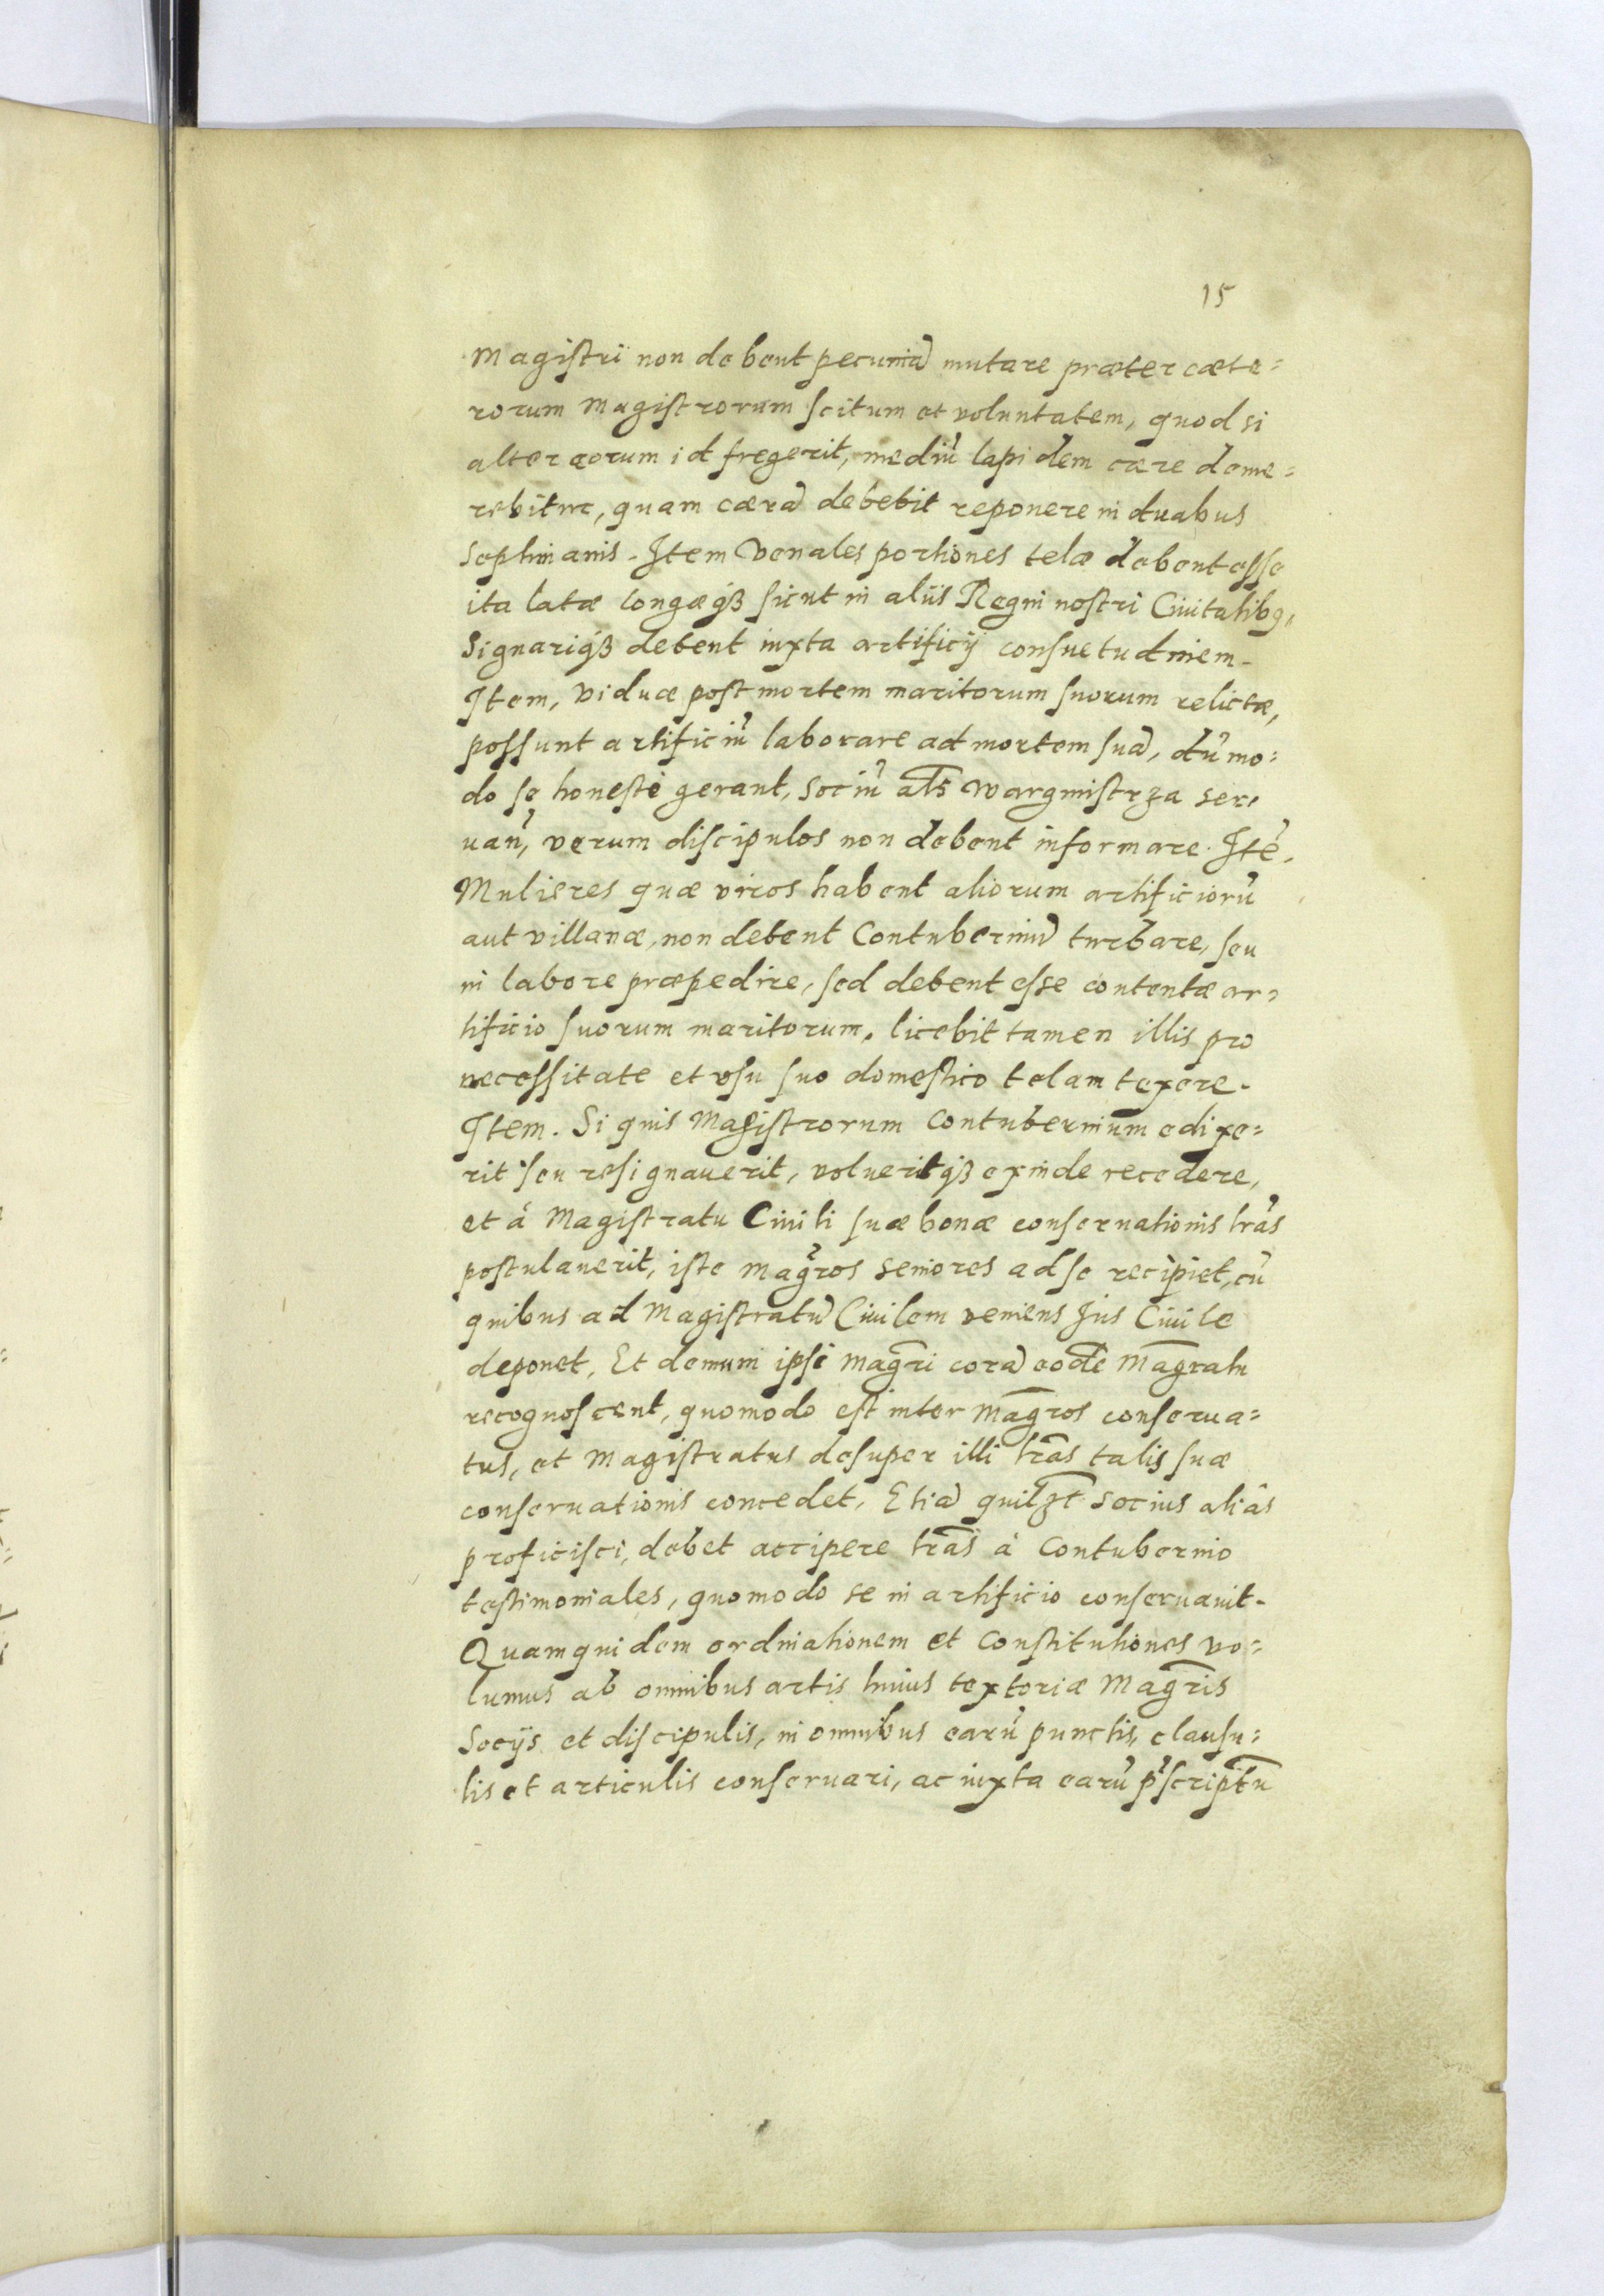 15
Magistri non debent pecuniã mutare præter cæte=
rorum Magistrorum scitum et voluntatem, quod si
alter eorum id fregerit, mediũ lapidem cæræ deme=
rebitur, quam cærã debebit reponere in duabus
septimanis. Item Venales portiones telæ debent esse
ita latæ longæqȝ sicut in aliis Regni nostri Civitatibꝰ,
Signariqȝ debent iuxta artificij consuetudinem.
Item, viduæ post mortem maritorum suorum relictæ,
possunt artificiũ laborare ad mortem suã, dũmo=
do se honestè gerant, sociũ al̃s Wargmistrza ser=
uañ, verum discipulos non debent informare. Itẽ,
Mulieres quæ viros habent aliorum artificiorũ
aut villanæ, non debent Contuberniũ turbare, seu
in labore præpedire, sed debent esse contentæ ar=
tificio suorum maritorum, licebit tamen illis pro
necessitate et vsu suo domestico telam texere.
Item. Si quis Magistrorum Contubernium edixe=
rit seu resignauerit, volueritqȝ exinde recedere,
et à Magistratu Ciuili suæ bonæ conseruationis lr̃as
postulauerit, iste mag̃ros seniores ad se recipiet, cũ
quibus ad Magistratũ Ciuilem veniens Jus Ciuile
deponet, Et demum ipsi mag̃ri corã eodẽ Mag̃ratu
recognoscent, quomodo est inter Mag̃ros conserua=
tus, et Magistratus desuper illi lr̃as talis suæ
conseruationis concedet, Etiã quilȝt̃ Socius aliàs
proficisci, debet accipere lr̃as à Contubernio
testimoniales, quomodo se in artificio conseruauit.
Quamquidem ordinationem et Constitutiones vo=
lumus ab omnibus artis huius textoriæ Mag̃ris
Socijs et discipulis, in omnibus earũ punctis, clausu=
lis et articulis conseruari, ac iuxta earũ p̃scriptũ